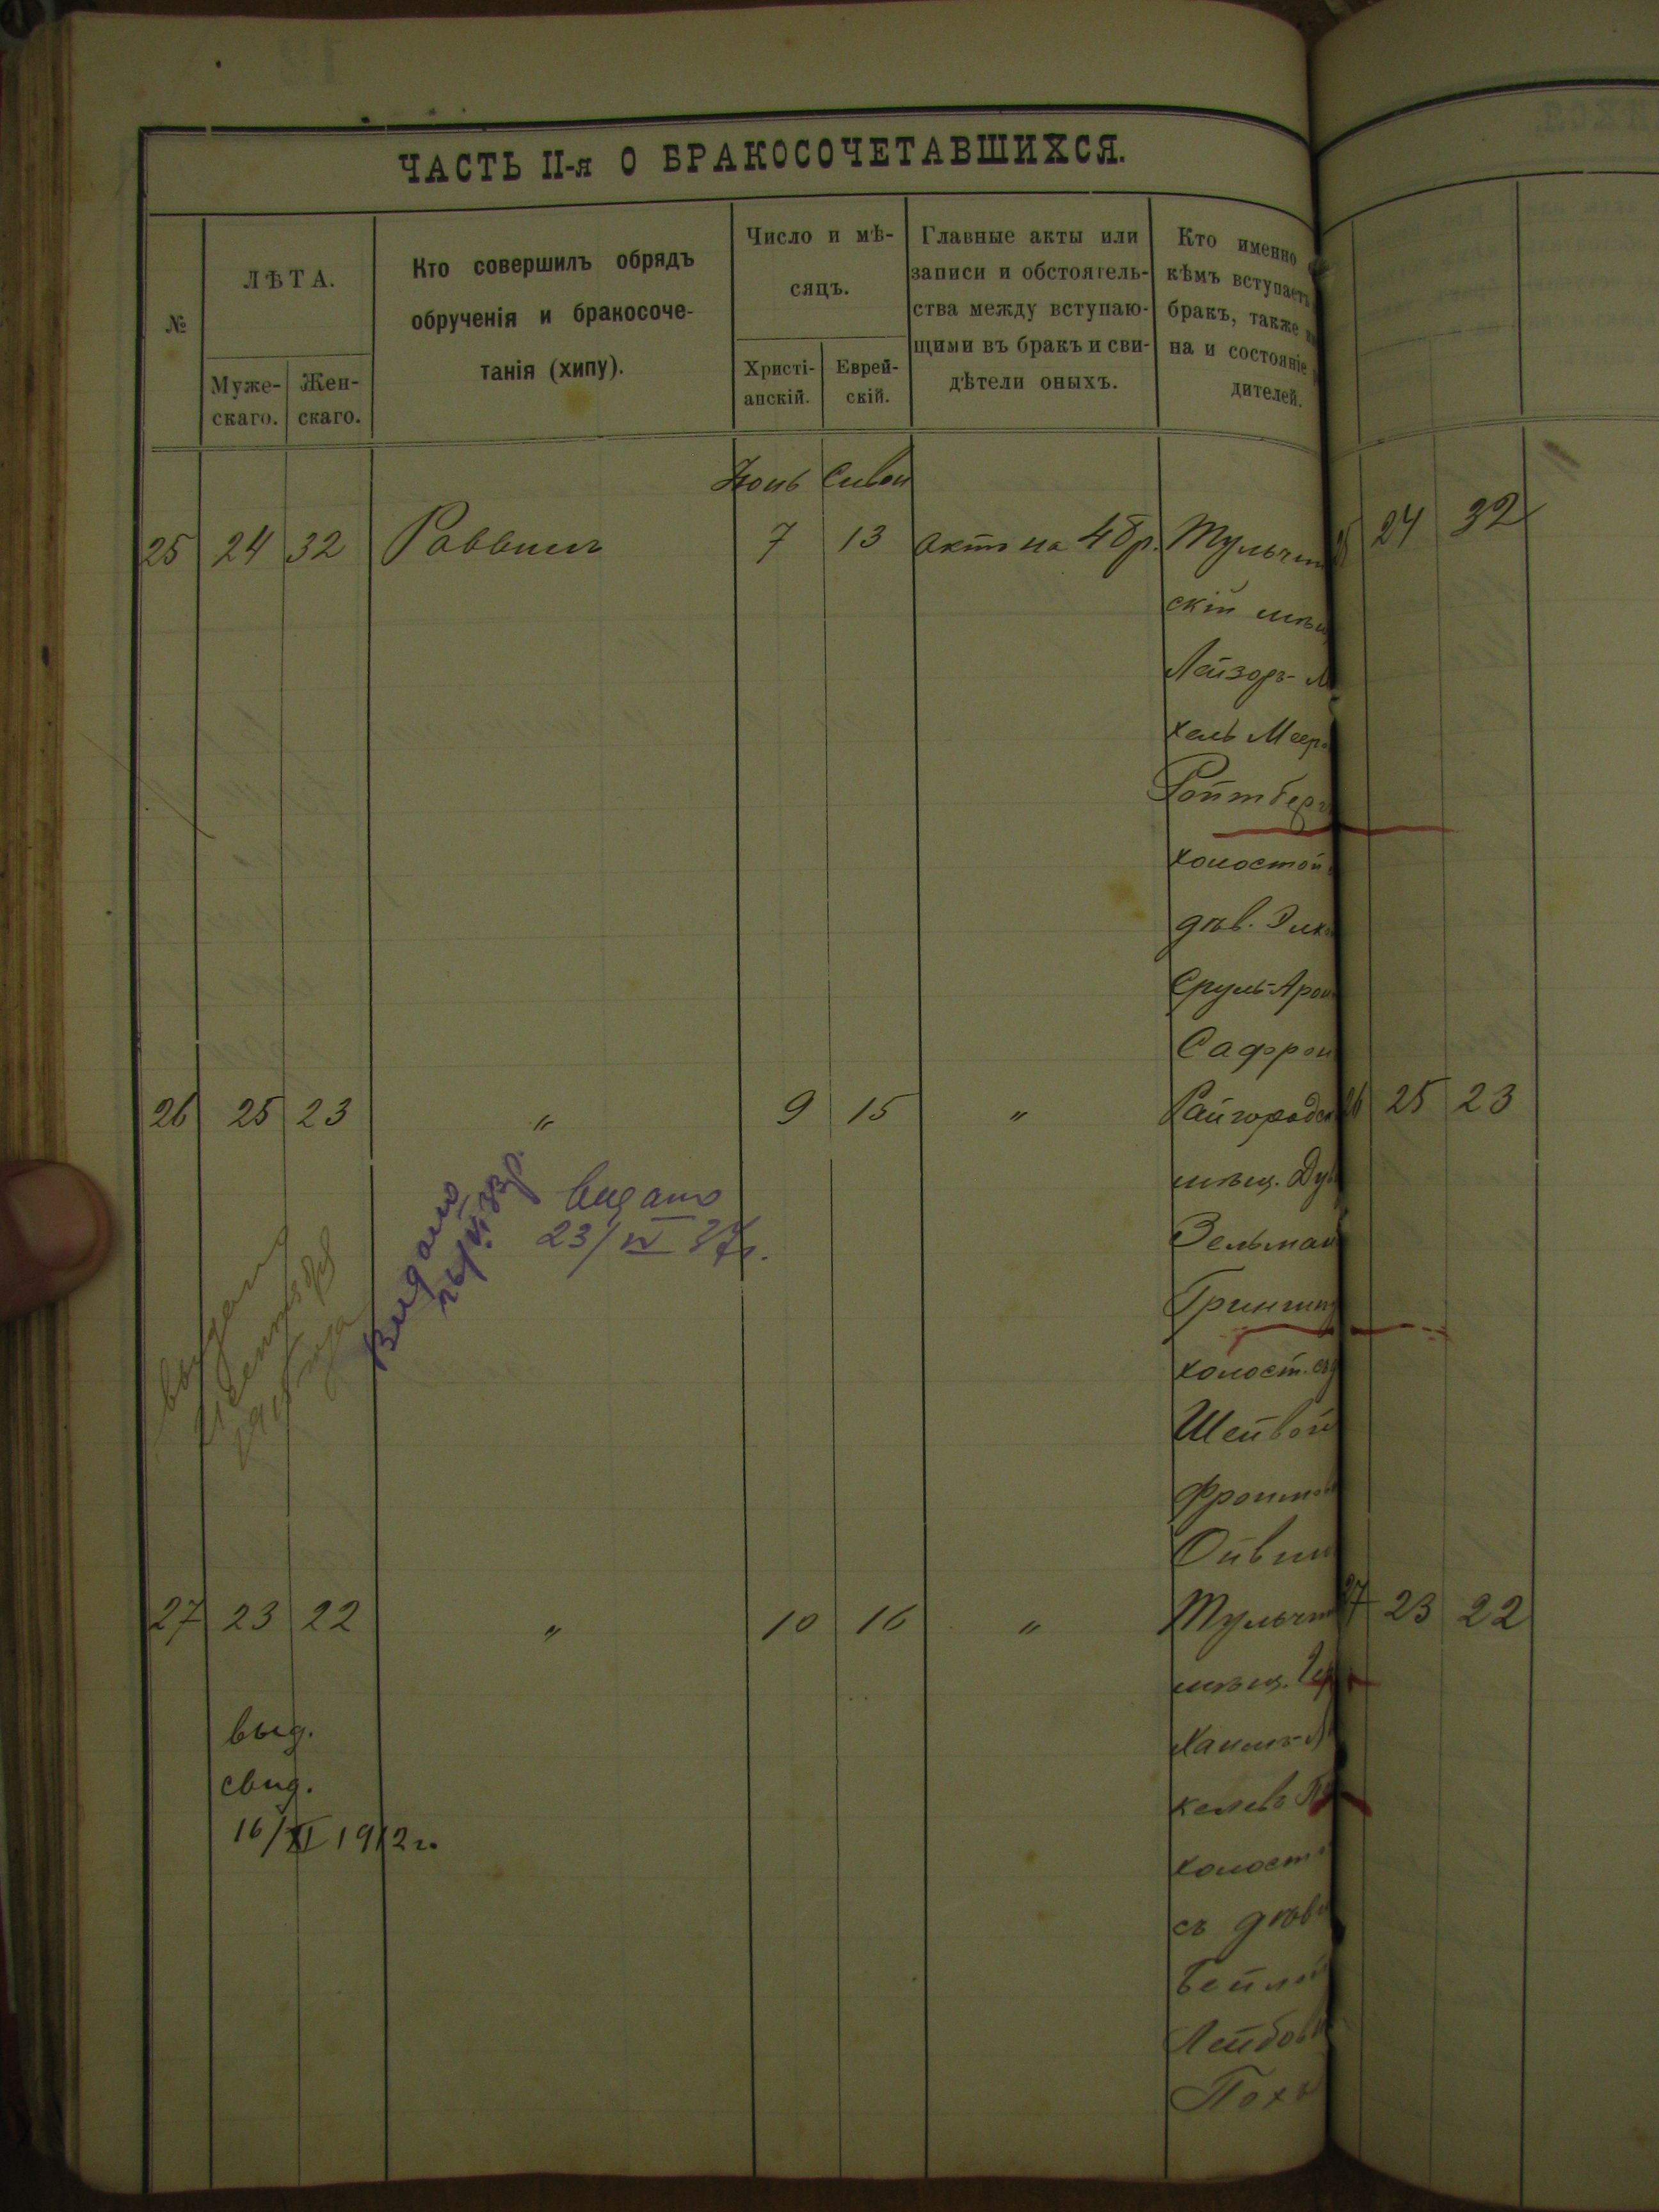 ЧАСТЬ II-я О БРАКОСОЧЕТАВШИХСЯ.
№
ЛѢТА.
Муже-
скаго.
Жен-
скаго.
Кто совершилъ обрядъ
обрученія и бракосоче-
танія (хипу).
Число и мѣ-
сяцъ.
Христі-
анскій.
Еврей-
скій.
Главные акты или
записи и обстоятель-
ства между вступаю-
щими въ бракъ и сви-
дѣтели оныхъ.
Кто именно
кѣмъ вступаетъ
бракъ, также
на и состояніе
дителей.
Іюнь Сиван
25 24 32 Раввинъ 7 13 актъ на 48 р. Тульчин
скій мѣщ
Лейзоръ-М
хель Меер
Ройтберг
холостой
дѣв. Элк
Сруль-Арон
Сафрон
26 25 23 " 9 15 " Райгородск
мѣщ. Дув
Зельман
Гриншп
холост. съ
Шейвой
Фроимов
Ойвши
27 23 22 " 10 16 " Тульчин
мѣщ.
Хаимъ-
келевъ
холост
съ дѣв
Бейлой
Лейбов
Пох
выдан
21 сентября
1915 года
Видано
26/VI 33р.
видано
23/IV 37г.
выд.
свид.
16/XI 1912 г.
25 24 32
26 25 23
27 23 22